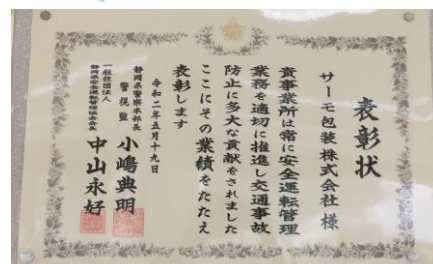 表彰状
サーモ包装株式会社 様
貴事業所は常に安全運転管理
業務を適切に推進し交通事故
防止に多大な貢献をされました
ここにその業績をたたえ
表彰します
令和二年五月十九日
静岡県警察本部長
警視監 小嶋典明
一般社団法人
静岡県安全運転管理協会会長
中山永好